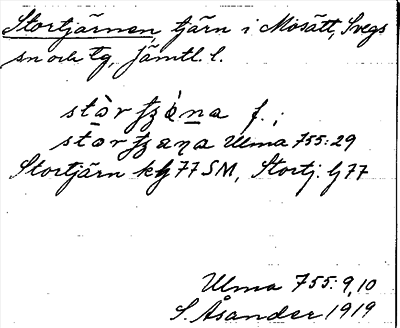 Stortjärnen, tjärn i Mosätt, Svegs
sn och tg, Jämtl. l.
stòrtʒána f.;
stortʒaṇa Ulma 755:29
Stortjärn kbg 77 SM, Stortj. G 77
Ulma 755:9,10
S. Åsander 1919